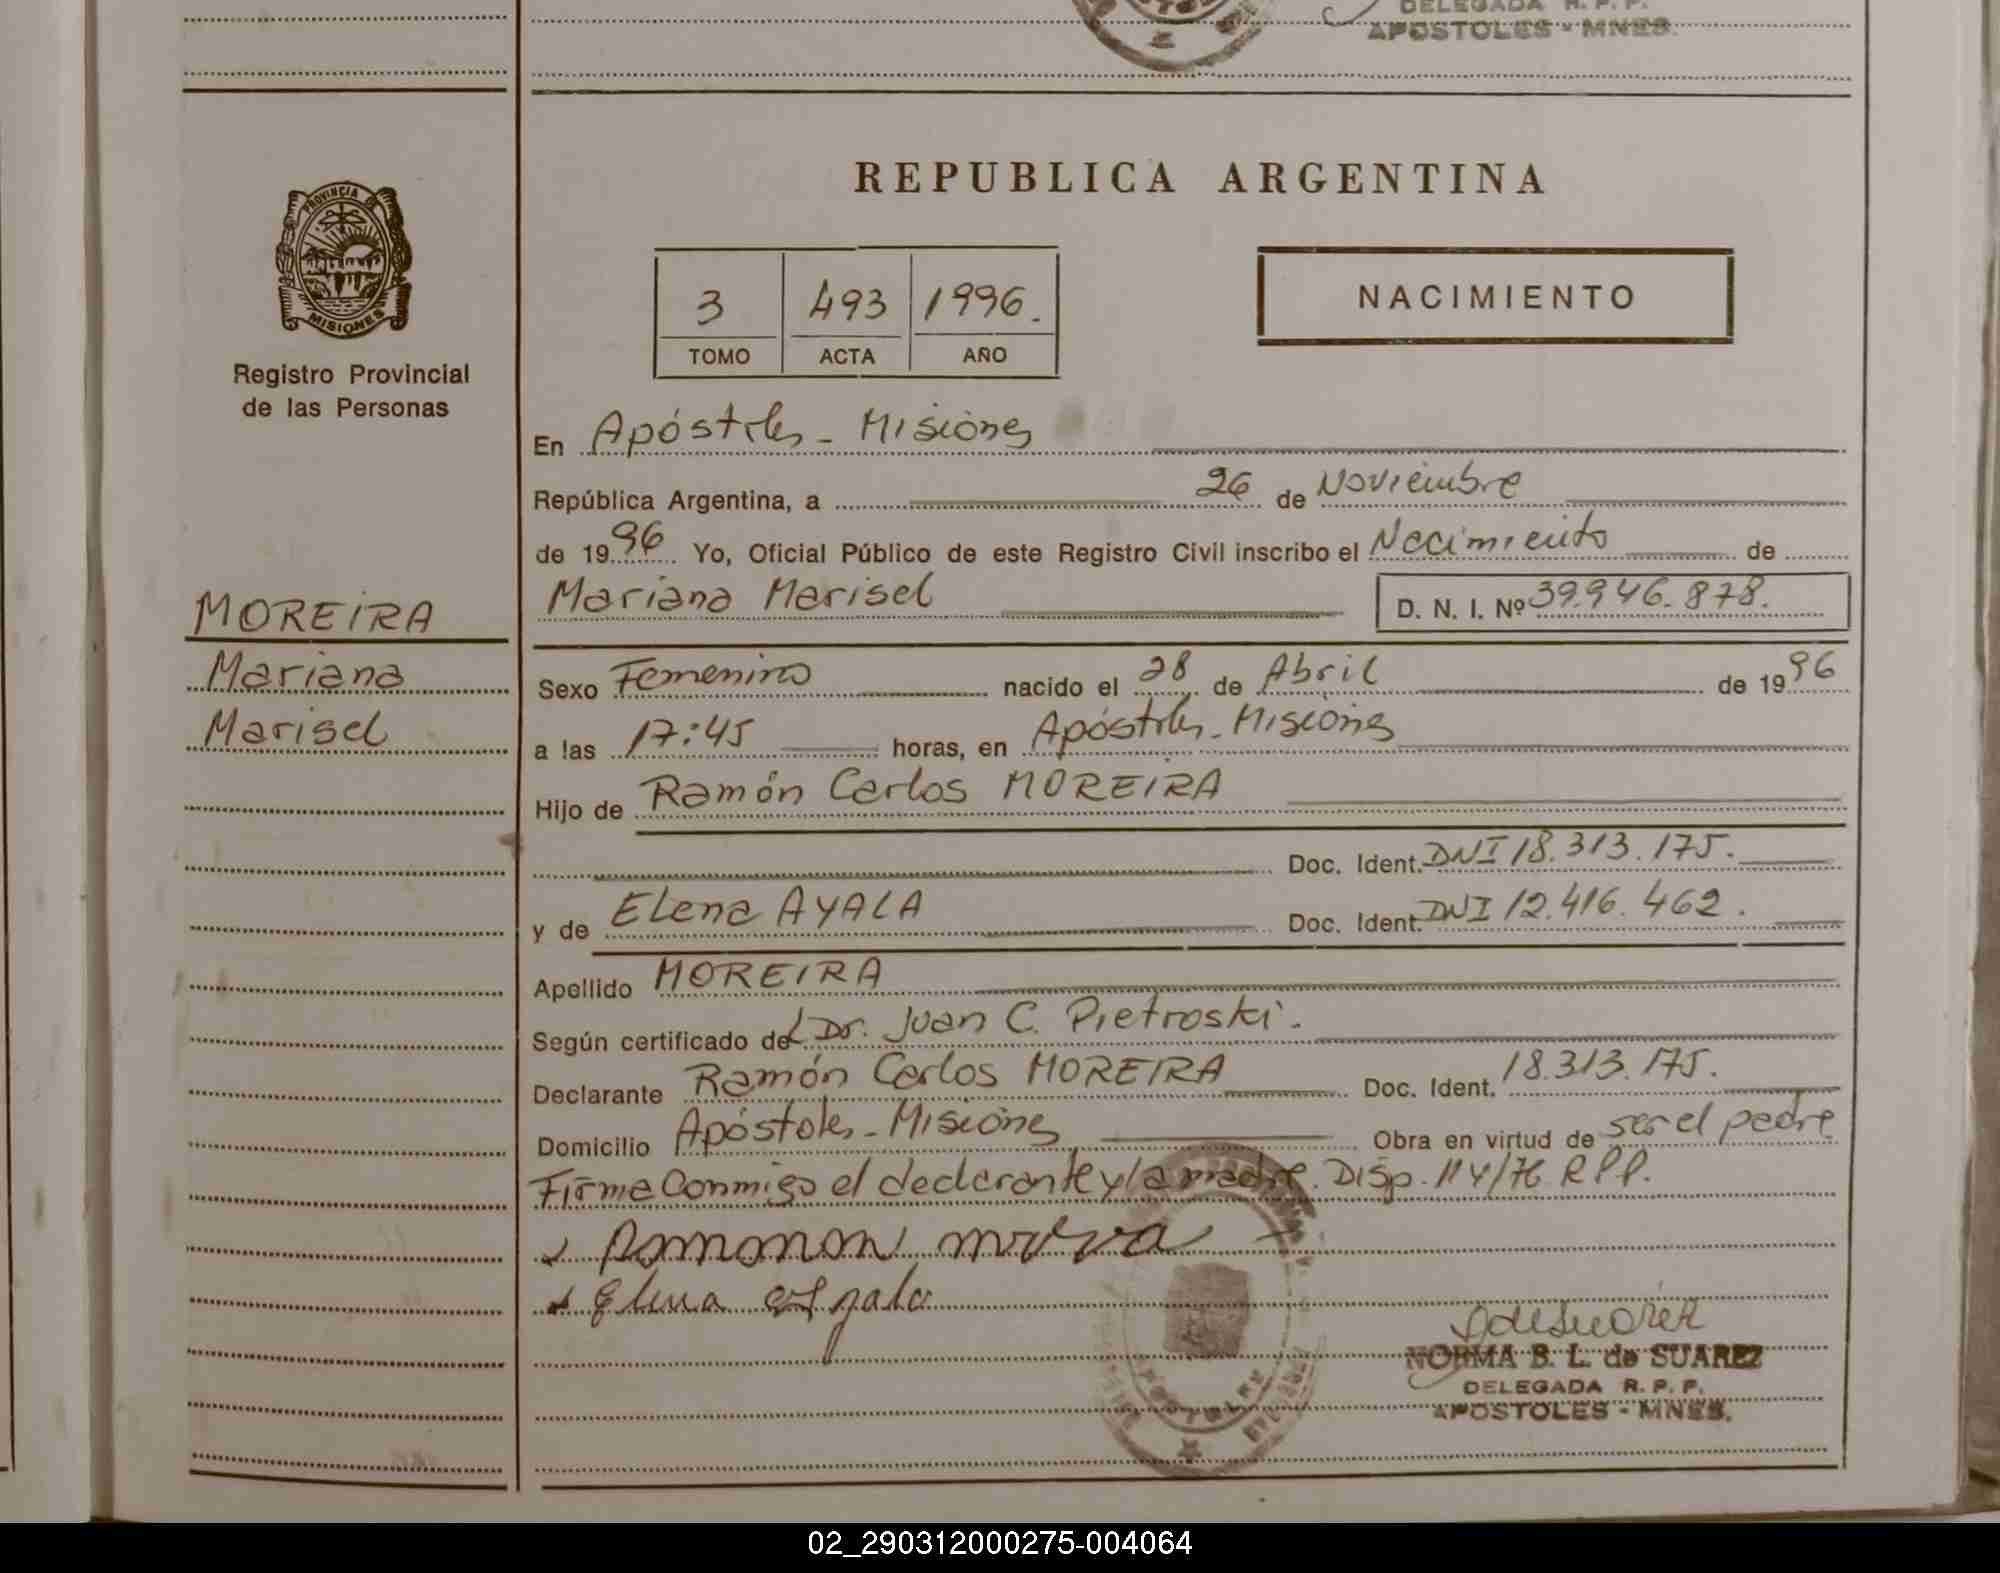 DELEGADA R. P. P.
APOSTOLES - MNES.
PROVINCIA DE
MISIONES
Registro Provincial
de las Personas
MOREIRA
Mariana
Marisel
REPUBLICA ARGENTINA
3 493 1996.
TOMO ACTA AÑO
NACIMIENTO
En Apóstoles - Misiones
República Argentina, a 26 de Noviembre
de 1996 Yo, Oficial Público de este Registro Civil inscribo el Nacimiento de
Mariana Marisel D. N. I. Nº 39.946.878.
Sexo Femenino nacido el 28 de Abril de 1996
a las 17:45 horas, en Apóstoles - Misiones
Hijo de Ramón Carlos MOREIRA
Doc. Ident. DNI 18.313.175.
y de Elena AYALA Doc. Ident. DNI 12.416.462.
Apellido MOREIRA
Según certificado del Dr. Juan C. Pietroski.
Declarante Ramón Carlos MOREIRA Doc. Ident. 18.313.175.
Domicilio Apóstoles - Misiones Obra en virtud de ser el padre
Firma Conmigo el declarante y la madre. Disp. 114/76 R P P.
Elena
NORMA B. L. de SUAREZ
DELEGADA R. P. P.
APOSTOLES - MNES.
02_290312000275-004064